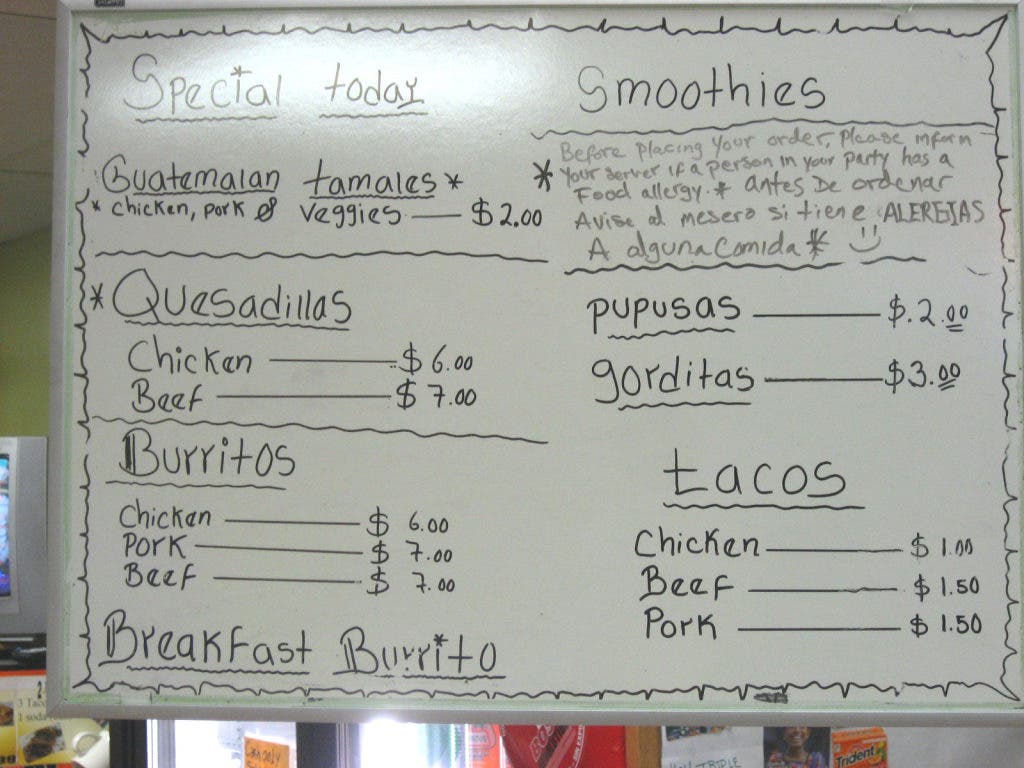 Special today
Guatemalan tamales *
* chicken, pork & veggies — $2.00
* Quesadillas
Chicken — $6.00
Beef — $7.00
Burritos
Chicken — $ 6.00
Pork — $ 7.00
Beef — $ 7.00
Breakfast Burrito
Smoothies
* Before placing your order, Please inform
your server if a person in your party has a
Food allergy. * Antes De ordenar
Avise al mesero si tiene ALERGIAS
A alguna Comida *
pupusas — $.2.00
gorditas — $3.00
tacos
Chicken — $ 1.00
Beef — $ 1.50
Pork — $ 1.50
1 soda
Trident